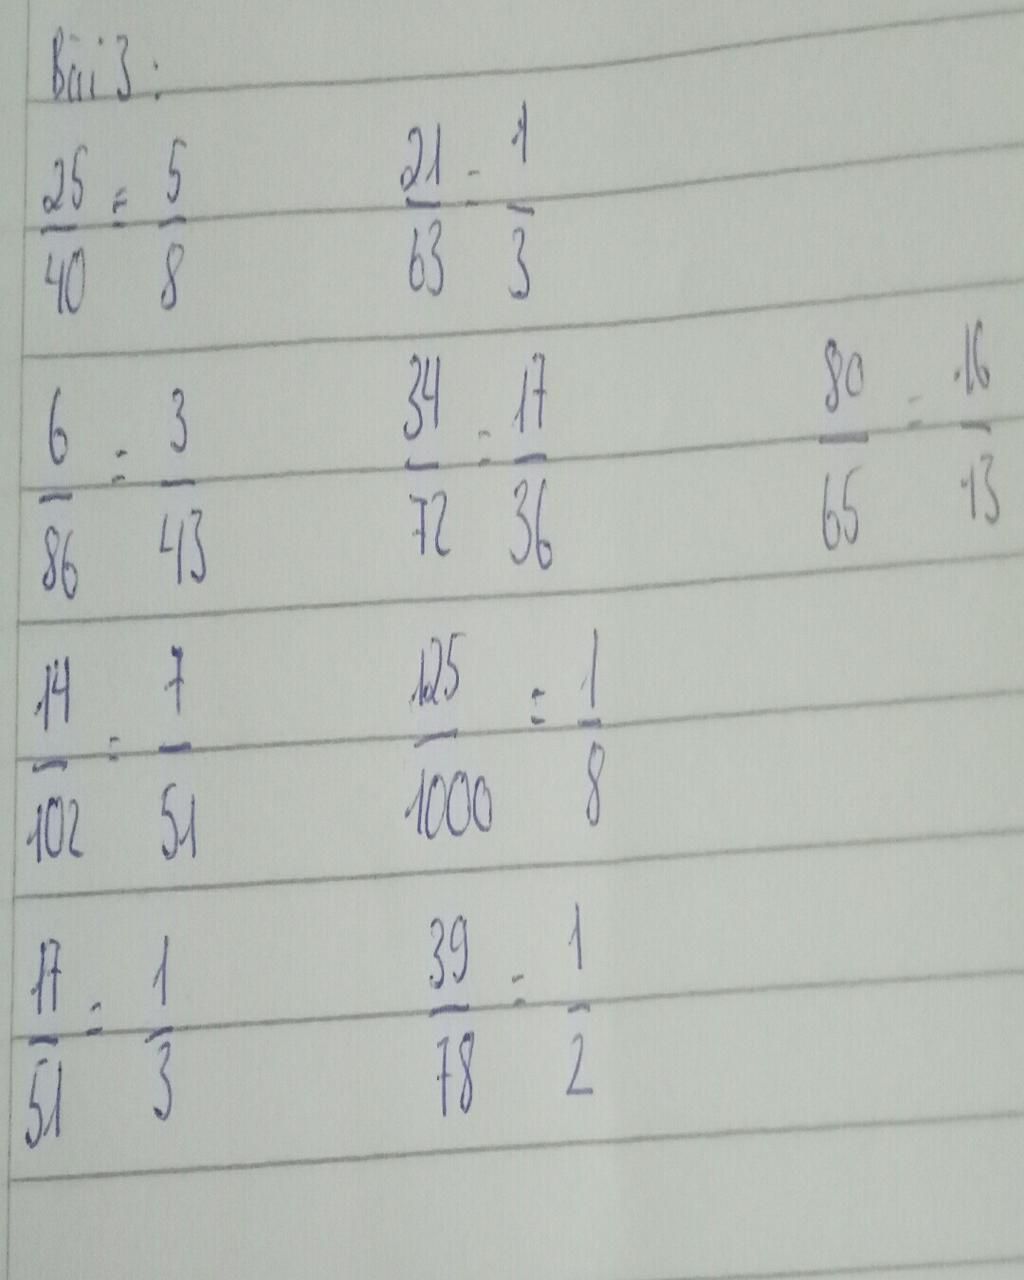 Bài 3:
25/40 = 5/8 21/63 = 1/3
6/86 = 3/43 34/72 = 17/36 80/65 = 16/13
14/102 = 7/51 125/1000 = 1/8
17/51 = 1/3 39/78 = 1/2